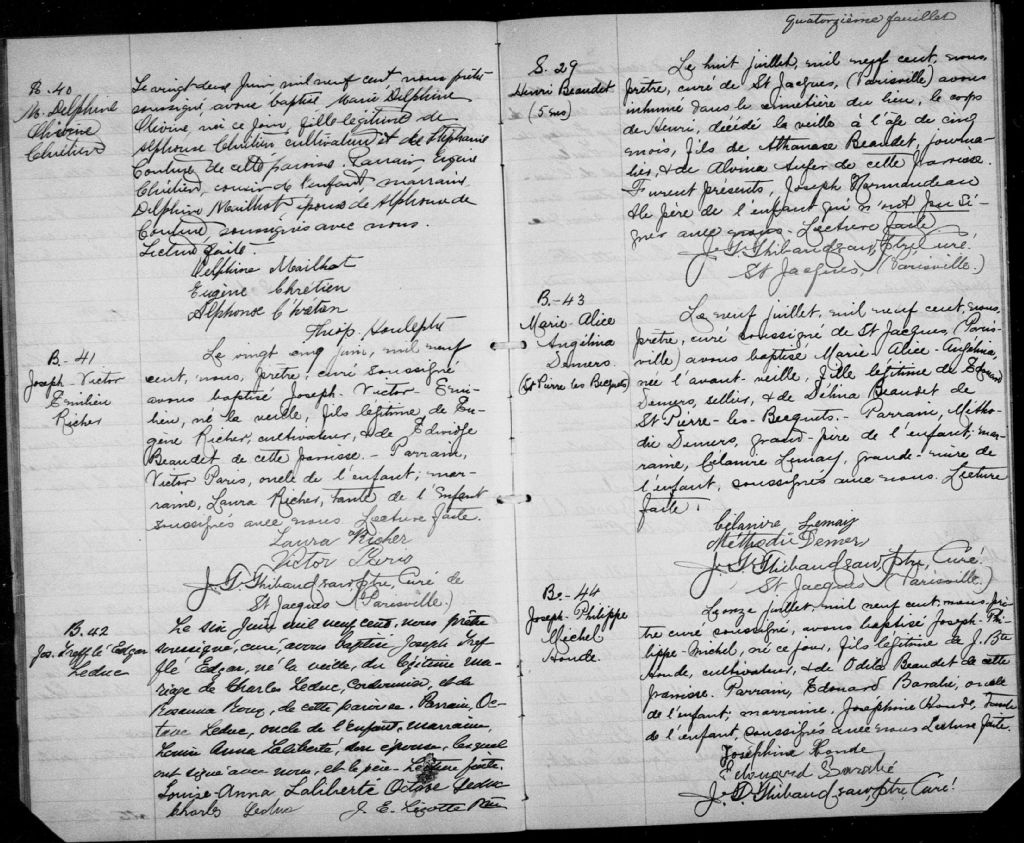 quatorzième feuillet
B. 40
M. Delphine
Olivine
Chrétien
Le vingt deux Juin, mil neuf cent, nous prêtre
soussigné, avons baptisé Marie Delphine
Olivine, née ce jour, fille légitime de
Alphonse Chrétien cultivateur et de Stéphanie
Couture de cette paroisse. Parrain Eugène
Chrétien, cousin de l'enfant, marraine
Delphine Mailhot épouse de Alphonse de
Couture soussignés avec nous.
Lecture faite.
Delphine Mailhot
Eugène Chrétien
Alphonse Chrétien
Théop. Houle ptre
B. - 41
Joseph - Victor
Emilien
Richer
Le vingt cinq juin, mil neuf
cent, nous, prêtre curé soussigné
avons baptisé Joseph - Victor - Emi-
lien, né la veille, fils légitime de Eu-
gène Richer, cultivateur, & de Edwidge
Beaudet de cette paroisse. - Parrain,
Victor Paris, oncle de l'enfant; mar-
raine, Laura Richer, tante de l'Enfant
soussignés avec nous. Lecture faite.
Laura Richer
Victor Paris
J. G. Thibaud sauv, ptre, Curé de
St Jacques (Parisville.)
B. 42
Jos. Trefflé Edgar
Leduc
Le six Juin mil neuf cent, nous prêtre
soussigné, curé, avons baptisé Joseph Tref
flé Edgar, né la veille, du légitime ma-
riage de Charles Leduc, Cordonnier, et de
Rosanna Rouy, de cette paroisse. Parrain, Oc-
tave Leduc, oncle de l'Enfant, marraine,
Louise Anna Laliberté, son épouse, lesquels
ont signé avec nous, et le père - Lecture faite.
Louise-Anna Laliberte Octave Leduc
Charles Leduc J. E. Lizotte Ptre
S. 29
Henri Beaudet
(5 ms)
Le huit juillet, mil neuf cent, nous,
prêtre, curé de St Jacques, (Parisville) avons
inhumé dans le cimetière du lieu, le corps
de Henri, décédé la veille à l'âge de cinq
mois, fils de Athanase Beaudet, journa-
lier, & de Alvina Auger de cette paroisse.
Furent présents, Joseph Normandeau
& le père de l'enfant qui n'ont pu si-
gner avec nous - Lecture faite
J. G. Thibaud sauv, ptre, Curé.
St Jacques, (Parisville.)
B. - 43
Marie - Alice
Angélina
Demers.
(St Pierre les Becquets)
Le neuf juillet, mil neuf cent, nous,
prêtre, curé soussigné de St Jacques, (Paris-
ville) avons baptisé Marie - Alice - Angélina,
née l'avant - veille, fille légitime de Edouard
Demers, sellier, & de Délina Beaudet de
St Pierre - les - Becquets. - Parrain, Métho-
die Demers, grand - père de l'enfant; mar-
raine, Célanire Lemay, grande - mère de
l'enfant, soussignés avec nous. Lecture
faite.
Célanire Lemay
Méthodie Demers
J. G. Thibaud sauv, ptre, Curé.
St Jacques (Parisville)
B. - 44
Joseph - Philippe
Michel
Houde.
Le onze juillet, mil neuf cent, nous prê-
tre curé soussigné, avons baptisé Joseph - Phi-
lippe - Michel, né ce jour, fils légitime de J. Bte
Houde, cultivateur, & de Odila Beaudet de cette
paroisse. Parrain, Edouard Barabé, oncle
de l'enfant; marraine, Josephine Houde, tante
de l'enfant, soussignés avec nous Lecture faite.
Joséphine Houde
Edouard Barabé
J. G. Thibaud sauv, ptre, Curé!